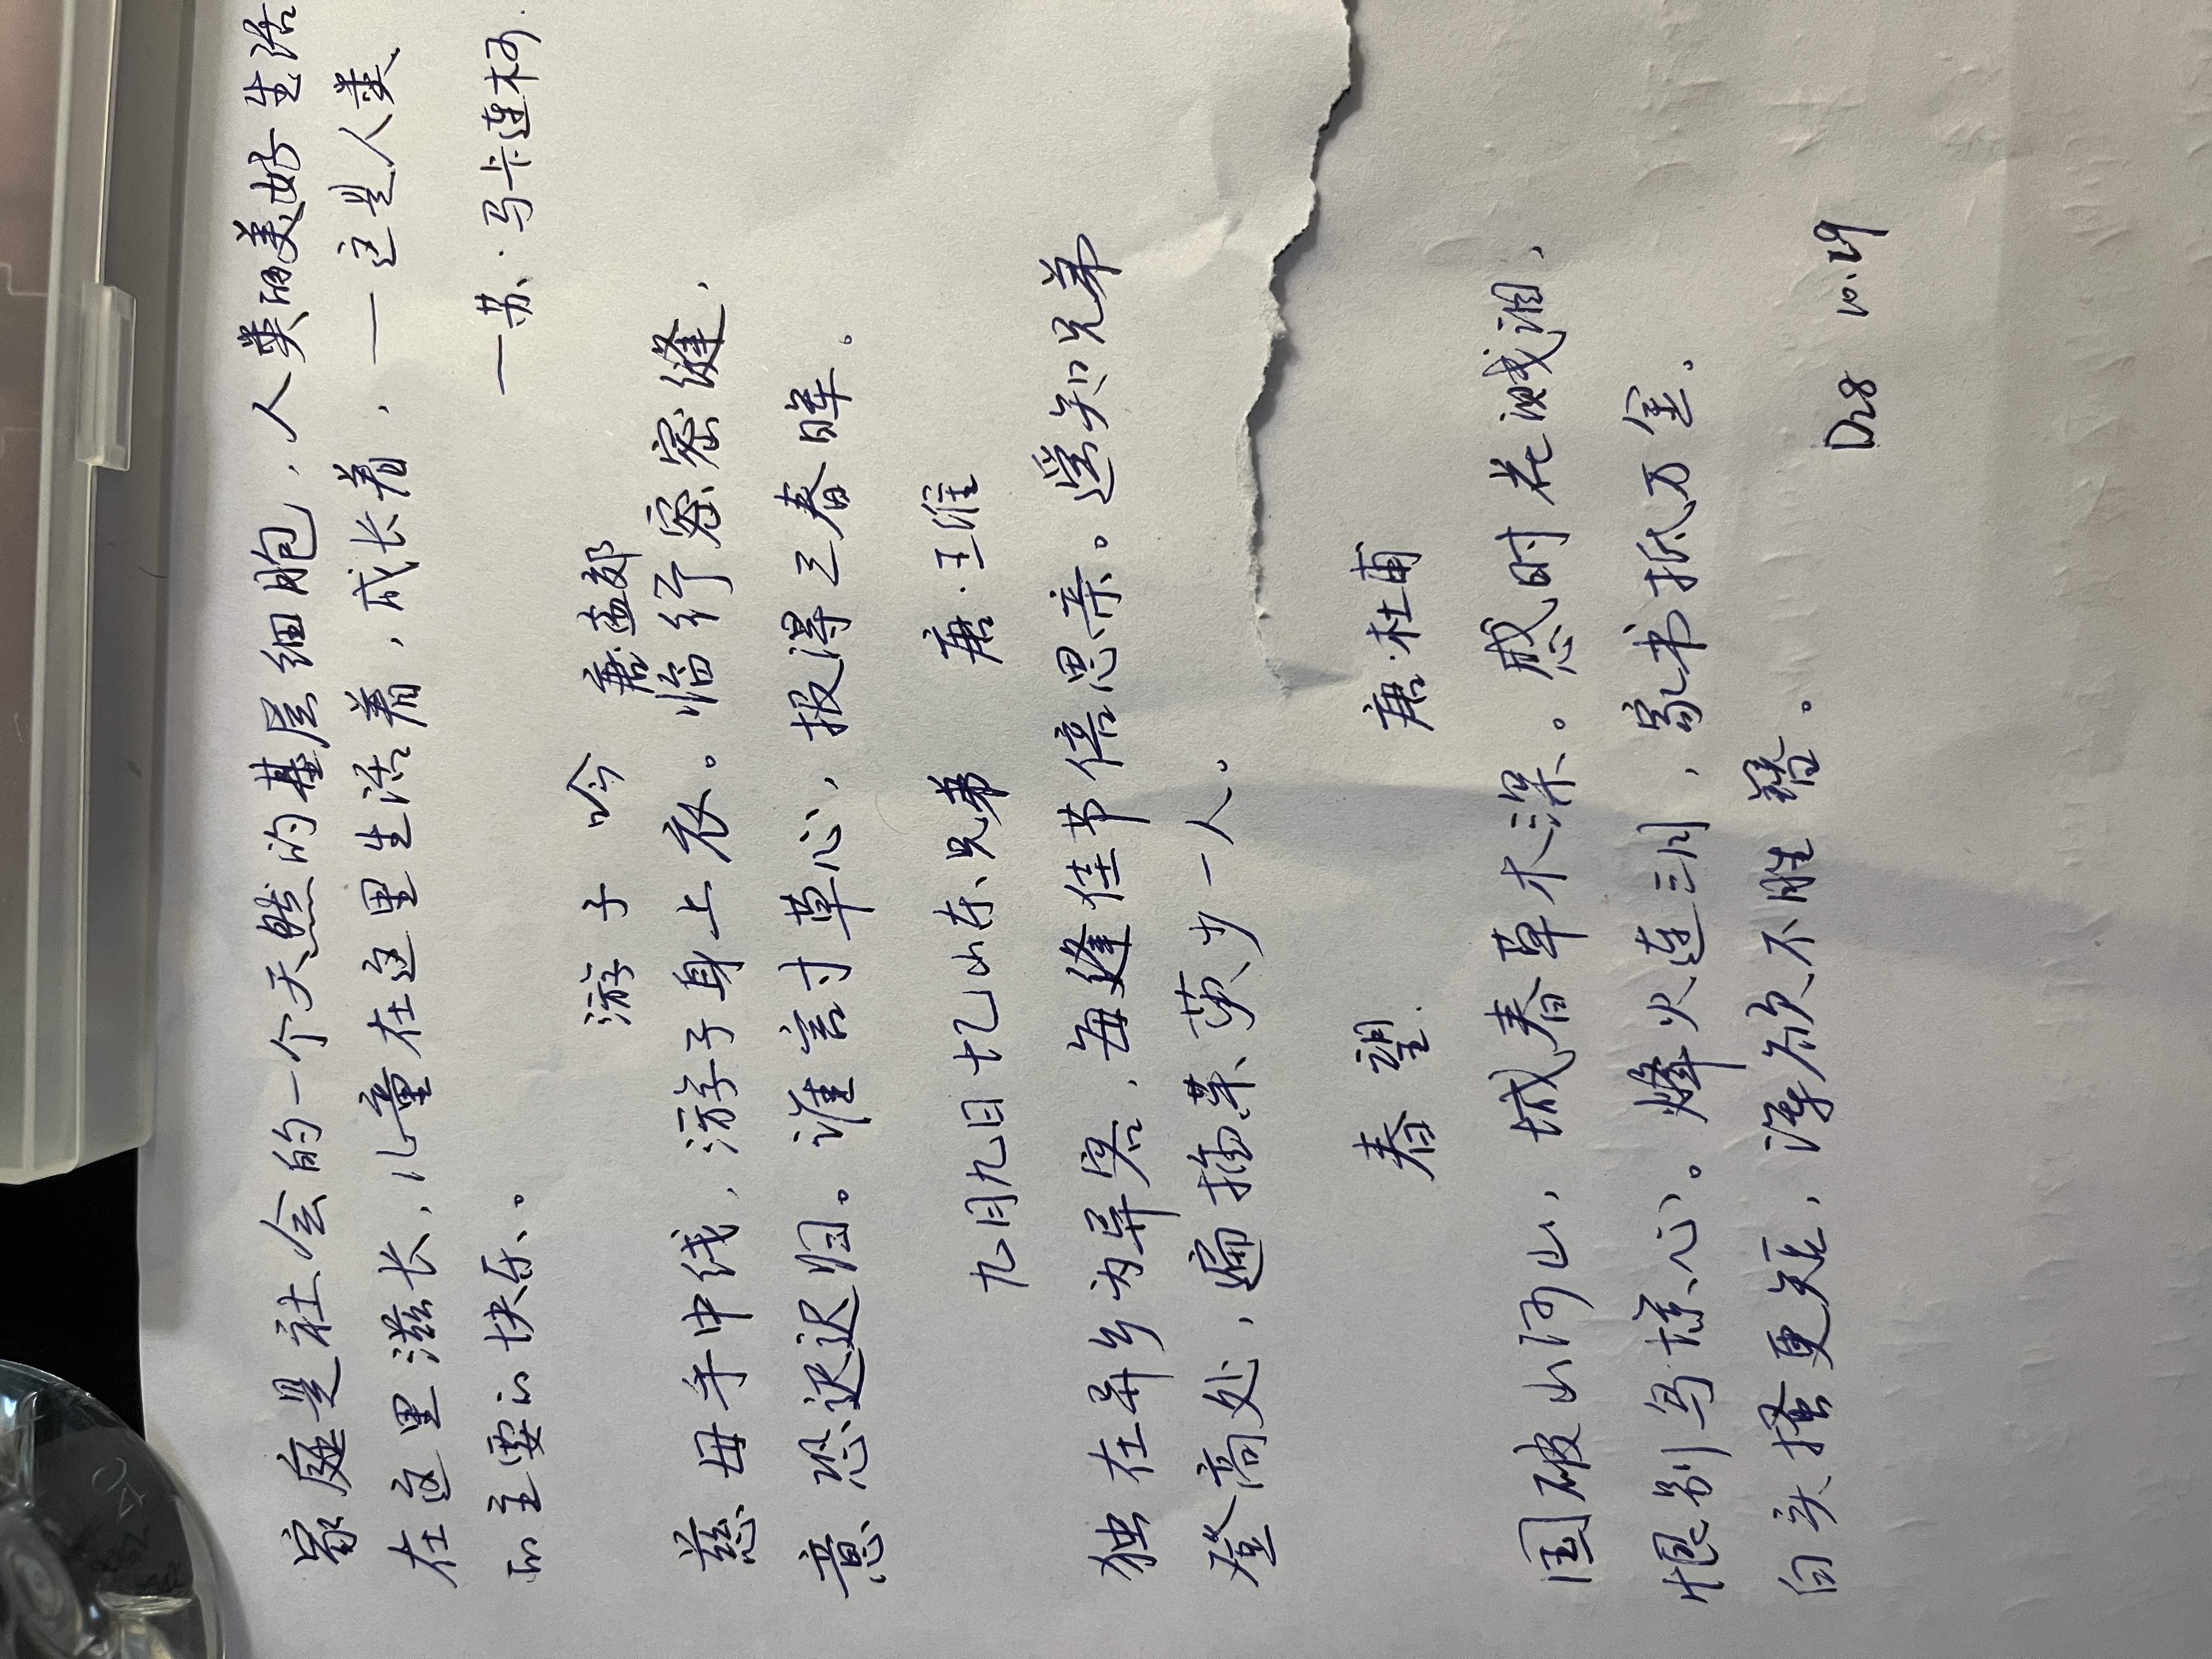 40
家庭是社会的一个天然的基层细胞，人类的美好生活
在这里滋长，儿童在这里生活着，成长着，—这是人类
的主要的快乐。
—苏·马卡连柯.
游子吟 唐·孟郊
慈母手中线，游子身上衣。临行密密缝，
意恐迟迟归。谁言寸草心，报得三春晖。
九月九日忆山东兄弟 唐·王维
独在异乡为异客，每逢佳节倍思亲。遥知兄弟
登高处，遍插茱萸少一人。
春望. 唐·杜甫
国破山河山，城春草木深。感时花溅泪，
恨别鸟惊心。烽火连三月，家书抵万金。
白头搔更短，浑欲不胜簪。
D28 10.29